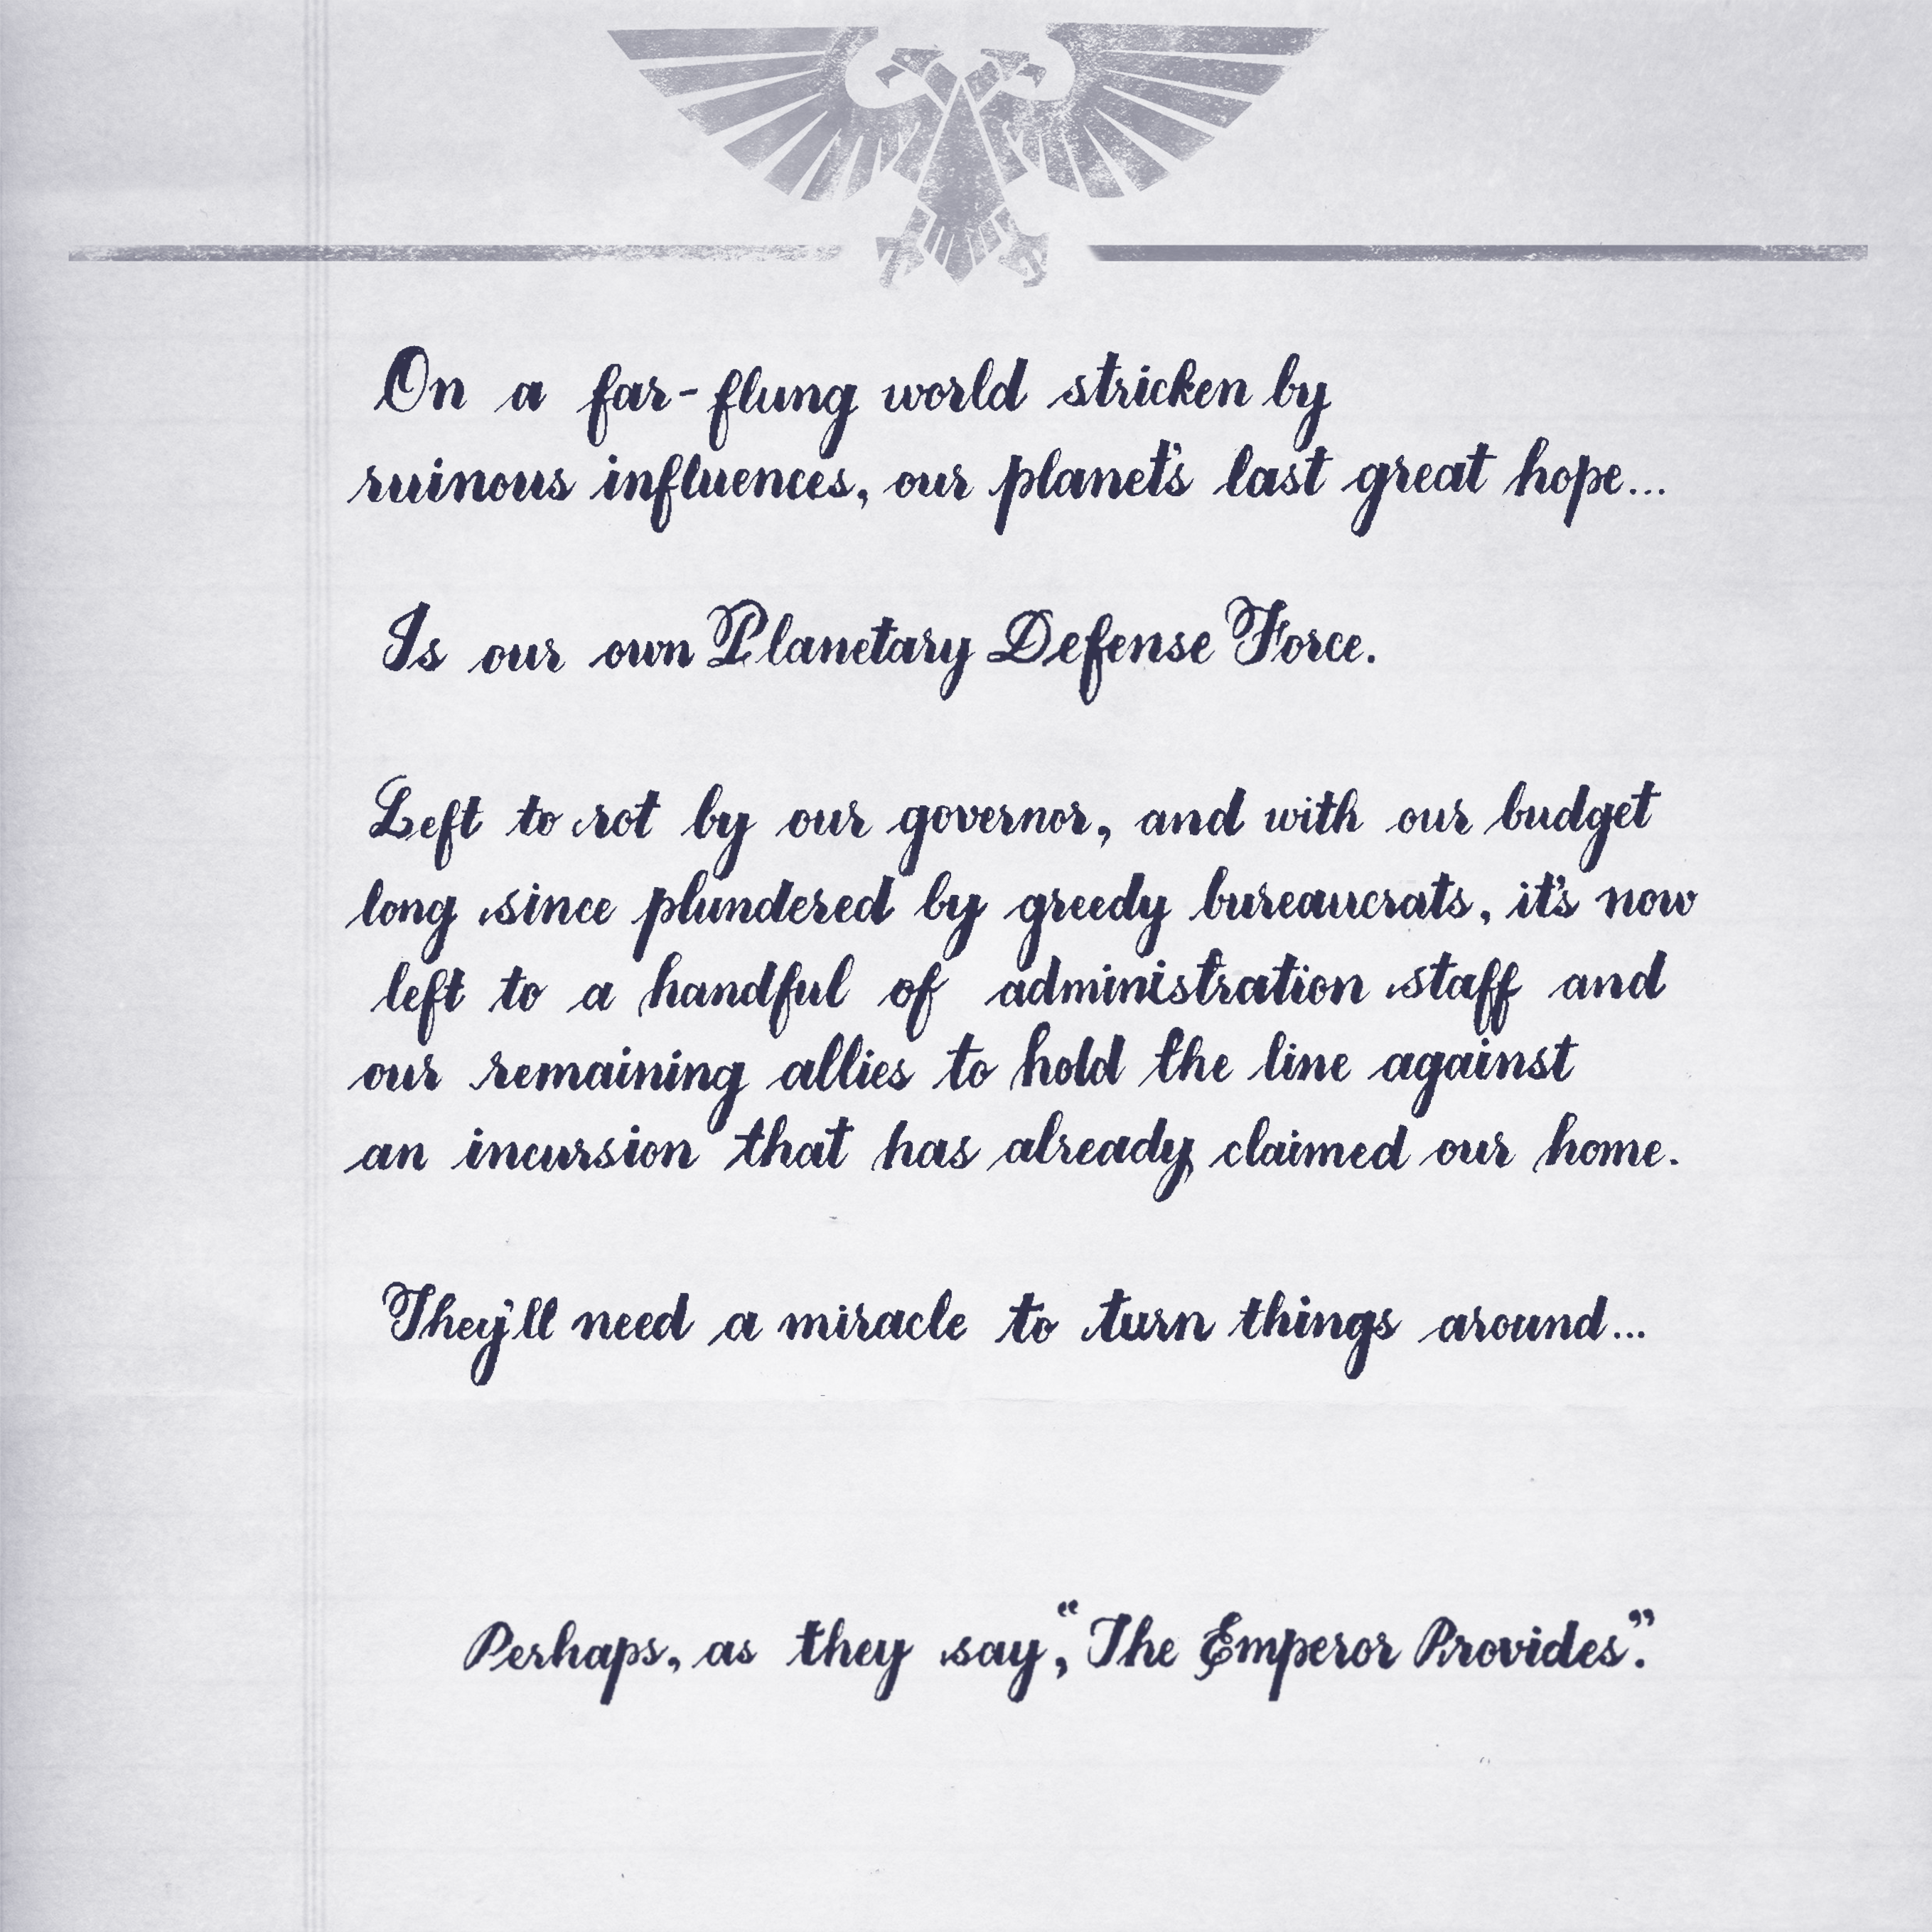 On a far-flung world stricken by
ruinous influences, our planet's last great hope...
Is our own Planetary Defense Force.
Left to rot by our governor, and with our budget
long since plundered by greedy bureaucrats, it's now
left to a handful of administration staff and
our remaining allies to hold the line against
an incursion that has already claimed our home.
They'll need a miracle to turn things around...
Perhaps, as they say, "The Emperor Provides".